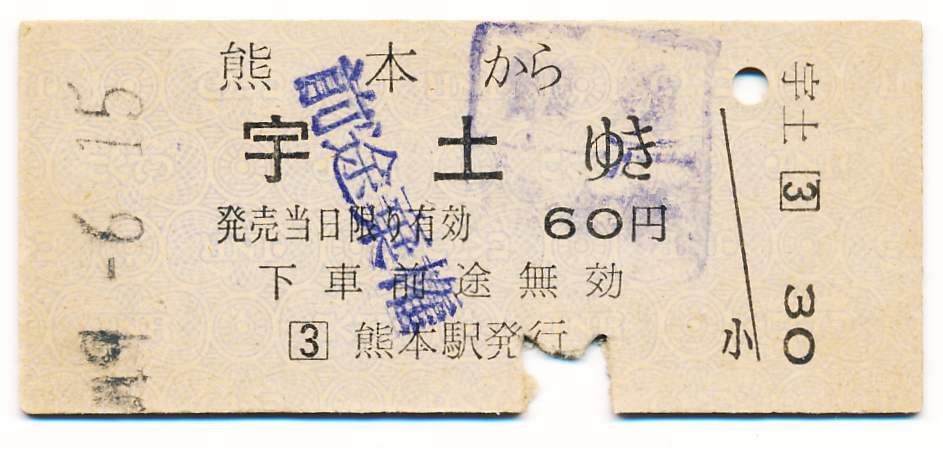 熊本から
宇土ゆき
発売当日限り有効 60円
下車前途無効
3 熊本駅発行
前途放棄
49.-6.15
宇土 3 30
小